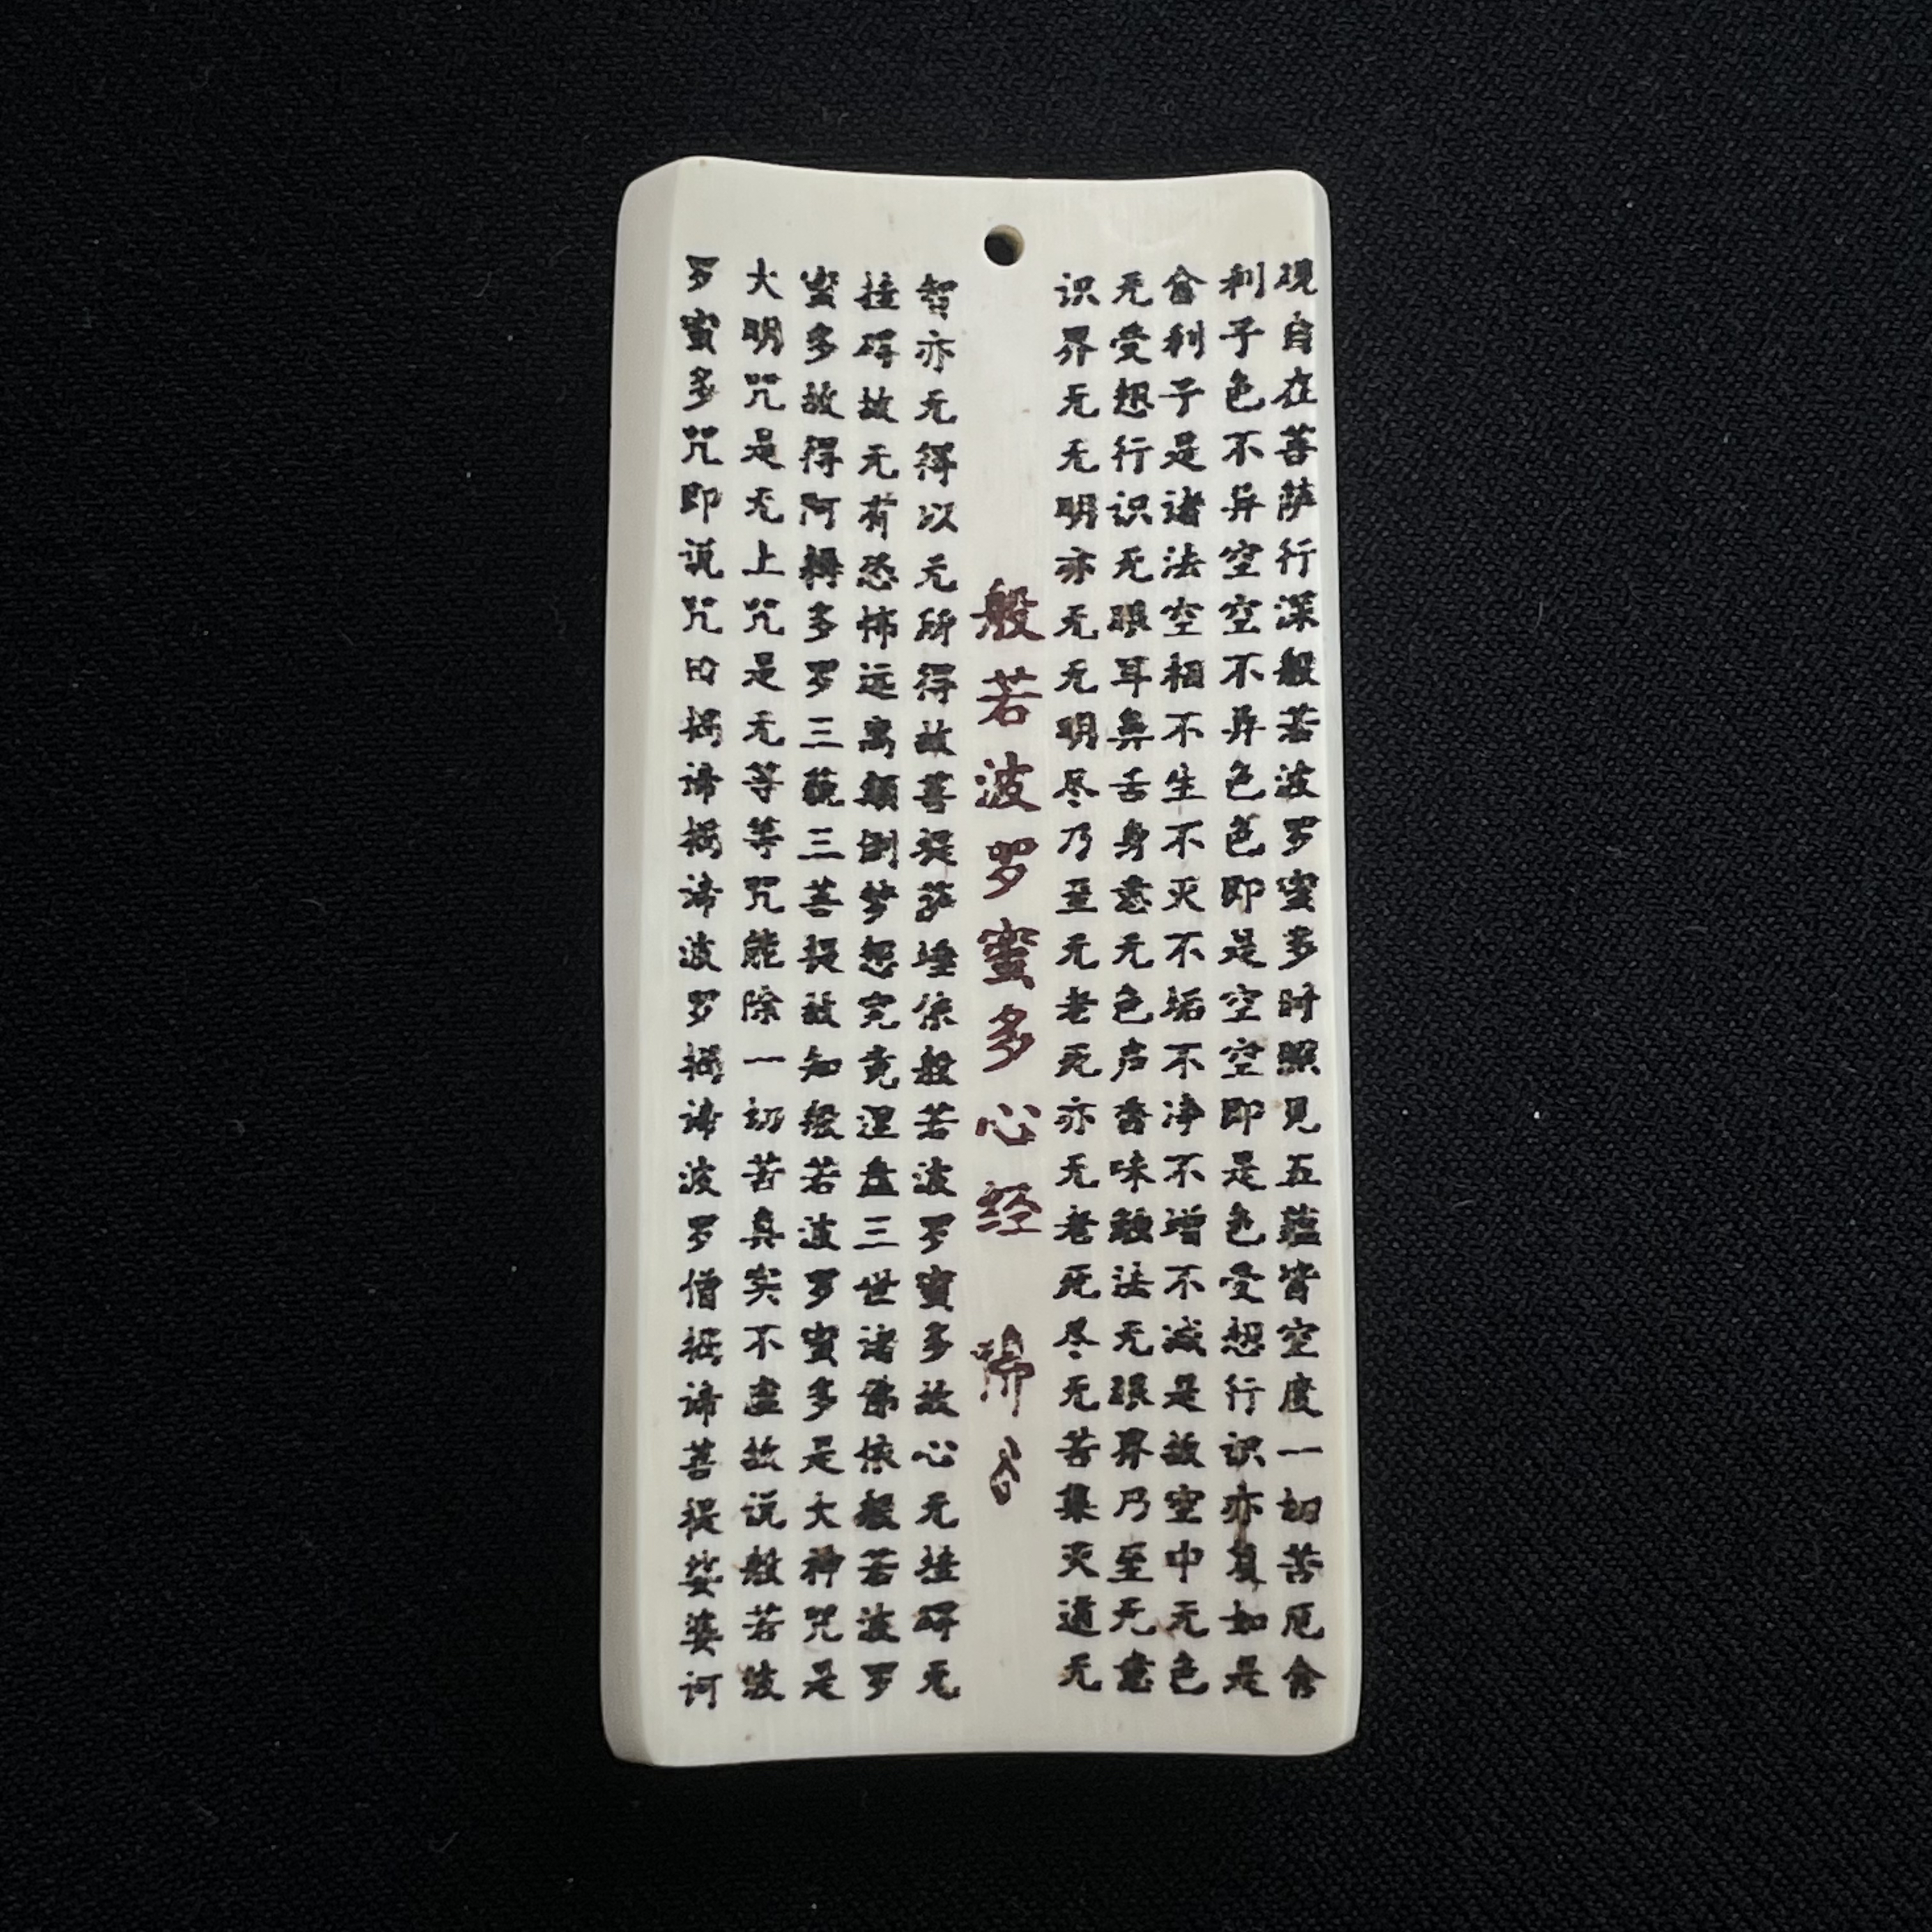 观自在菩萨行深般若波罗蜜多时照见五蕴皆空度一切苦厄舍
利子色不异空空不异色色即是空空即是色受想行识亦复如是
舍利子是诸法空相不生不灭不垢不净不增不减是故空中无色
无受想行识无眼耳鼻舌身意无色声香味触法无眼界乃至无意
识界无无明亦无无明尽乃至无老死亦无老死尽无苦集灭道无
般若波罗蜜多心经
智亦无得以无所得故菩提萨埵依般若波罗蜜多故心无挂碍无
挂碍故无有恐怖远离颠倒梦想究竟涅盘三世诸佛依般若波罗
蜜多故得阿耨多罗三藐三菩提故知般若波罗蜜多是大神咒是
大明咒是无上咒是无等等咒能除一切苦真实不虚故说般若波
罗蜜多咒即说咒曰揭谛揭谛波罗揭谛波罗僧揭谛菩提娑婆诃